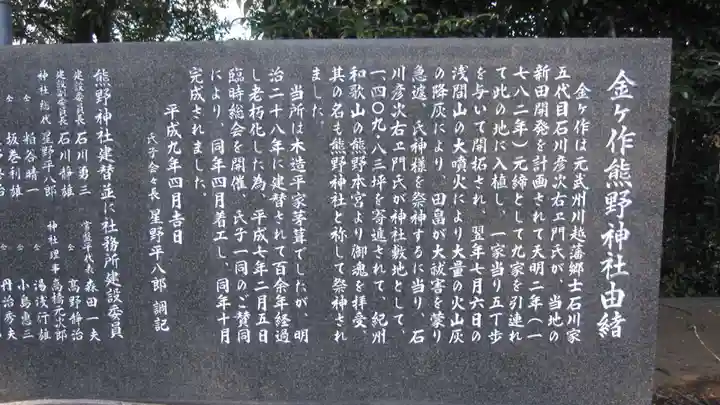 金ヶ作熊野神社由緒
金ヶ作は元武州川越藩郷士石川家
五代目石川彦次右ヱ門氏が、当地の
新田開発を計画されて天明二年(一
七八二年)元締として九家を引連れ
て此の地に入植し、一家当り五丁歩
を与いて開拓され、翌年七月六日の
浅間山の大噴火により大量の火山灰
の降灰により、田畠が大被害を蒙り
急遽、氏神様を祭神するに当り、石
川彦次右ヱ門氏が神社敷地として、
一、四〇九、八三坪を寄進されて、紀州
和歌山の熊野本宮より御魂を拝受、
其の名も熊野神社と称して祭神され
ました。
当所は木造平家茅葺でしたが、明
治二十八年に建替されて百余年経過
し老朽化した為、平成七年二月五日
臨時総会を開催、氏子一同のご賛同
により、同年四月着工し、同年十月
完成されました。
平成九年四月吉日
氏子会々長 星野平八郎 調記
熊野神社建替並に社務所建設委員
建設委員長 石川勇三 常盤平代表 森田一夫
建設副委員長 石川静雄 〃 高野静治
神社総代 星野平八郎 神社理事 高橋元次郎
〃 粕谷晴一 〃 湯浅行雄
〃 坂巻利雄 〃 小島惠三
〃 丹治秀夫